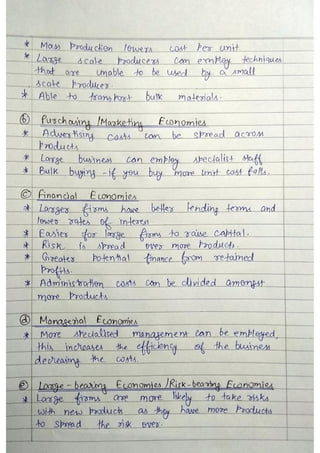 * Mass Production lowers cost per unit
* Large scale Producers can employ techniques
that are unable to be used by a small
scale Producer
* Able to transport bulk materials.
(b) Purchasing /Marketing Economies
* Advertising costs can be spread across
Products
* Large business can employ specialist staff
* Bulk buying - if you buy more unit cost falls.
(c) Financial Economies
* Larger firms have better lending terms and
lower rates of interest
* Easier for large firms to raise capital.
* Risk is spread over more Products.
* Greater Potential finance from retained
Profits.
* Administration costs can be divided amongst
more Products
(d) Managerial Economies
* More specialised management can be employed,
this increases the efficiency of the business
decreasing the costs.
(e) Large-bearing Economies /Risk-bearing Economies
* Large firms are more likely to take risks
with new Products as they have more Products
to spread the risk over.